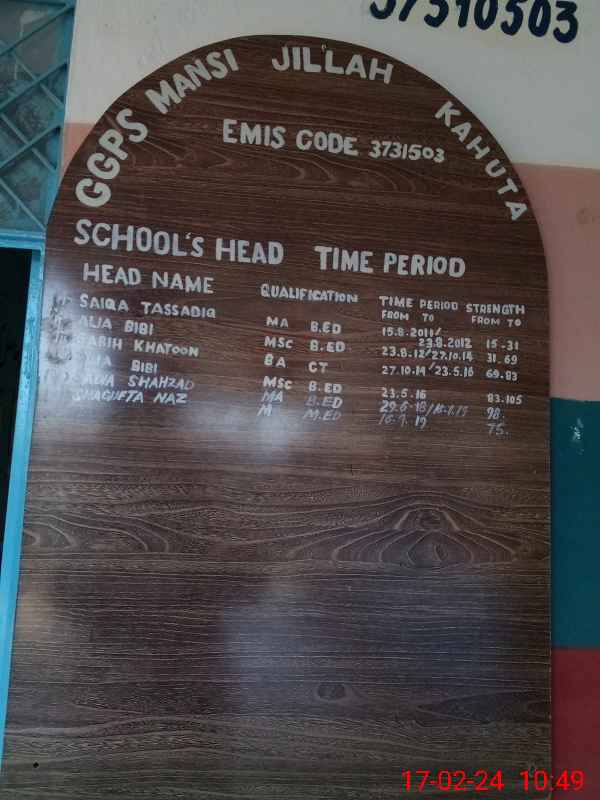 37310503
GGPS MANSI JILLAH KAHUTA
EMIS CODE 3731503
SCHOOL'S HEAD TIME PERIOD
HEAD NAME QUALIFICATION TIME PERIOD STRENGTH
FROM TO FROM TO
SAIQA TASSADIQ MA B.ED 15.8.2011/ 23.8.2012 15-31
ALIA BIBI MSC B.ED 23.8.12/27.10.14 31.69
KHATOON BA CT 27.10.14/23.5.16 69.83
BIBI MSC B.ED 23.5.16 83.105
SHAHZAD MA B.ED 98.
SHAGUFTA NAZ M M.ED 75.
17-02-24 10:49